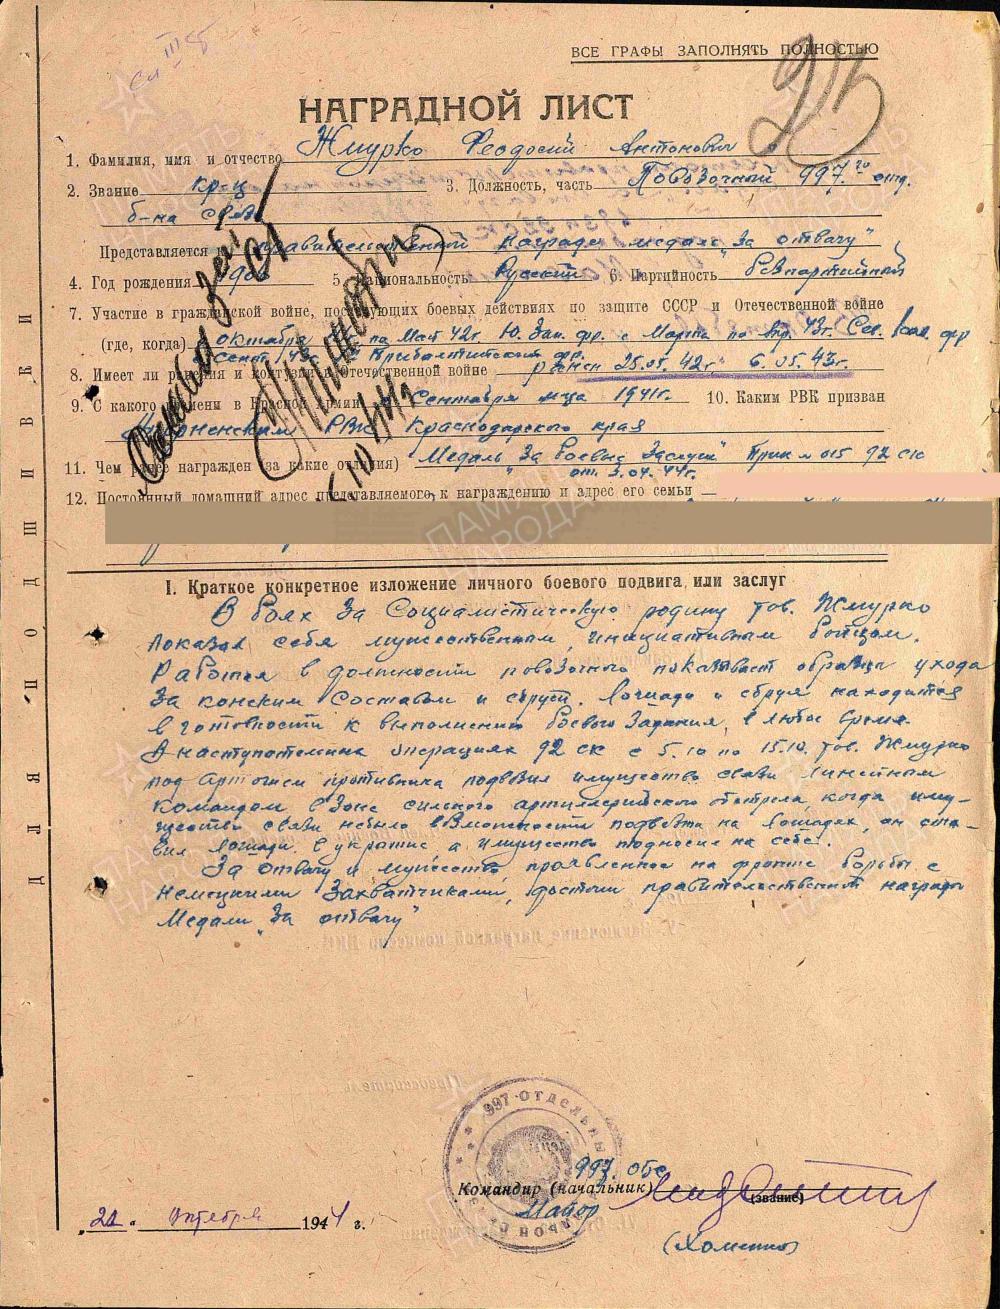 ВСЕ ГРАФЫ ЗАПОЛНЯТЬ ПОЛНОСТЬЮ
НАГРАДНОЙ ЛИСТ
1. Фамилия, имя и отчество Жмурко Феодосий Антонович
2. Звание кр-ц 3. Должность, часть Повозочный 997го отд.
б-на связи
Представляется к правительственной награде медаль "За отвагу"
4. Год рождения 5. Национальность Русский 6. Партийность беспартийный
7. Участие в гражданской войне, последующих боевых действиях по защите СССР и Отечественной войне
(где, когда) с октября по май 42г. Ю. Зап. фр. с марта по 43г. Сев. Кав. фр
Прибалтийский фр.
8. Имеет ли ранения и контузии в Отечественной войне ранен 25.05.42г 6.05.43г.
9. С какого времени в Красной Армии с Сентября м-ца 1941г. 10. Каким РВК призван
РВК Краснодарского края
11. Чем ранее награжден (за какие отличия) Медаль "За боевые заслуги" Прик. № 015 92 ск
от 3.04.44г.
12. Постоянный домашний адрес представляемого к награждению и адрес его семьи
I. Краткое конкретное изложение личного боевого подвига или заслуг
В боях за Социалистическую родину тов. Жмурко
показал себя мужественным, инициативным бойцом.
Работая в должности повозочного показывает образцы ухода
за конским составом и сбруей. Лошади и сбруя находятся
в готовности к выполнению боевого задания, в любое время.
В наступательных операциях 92 ск с 5.10 по 15.10. тов. Жмурко
под артогнем противника подвозил имущество связи линейным
командам в зоне сильного артиллерийского обстрела, когда иму-
щество связи не было возможности подвезти на лошадях, он ста-
вил лошадь в укрытие, а имущество подносил на себе.
За отвагу и мужество, проявленное на фронте борьбы с
немецкими захватчиками, достоин правительственной награды
Медали "За отвагу"
997 ОТДЕЛЬНЫЙ
997 обс
Командир (начальник)
Майор
(звание)
(Хоменко)
"22" октября 1944 г.
ДЛЯ ПОДШИВКИ
ПАМЯТЬ НАРОДА